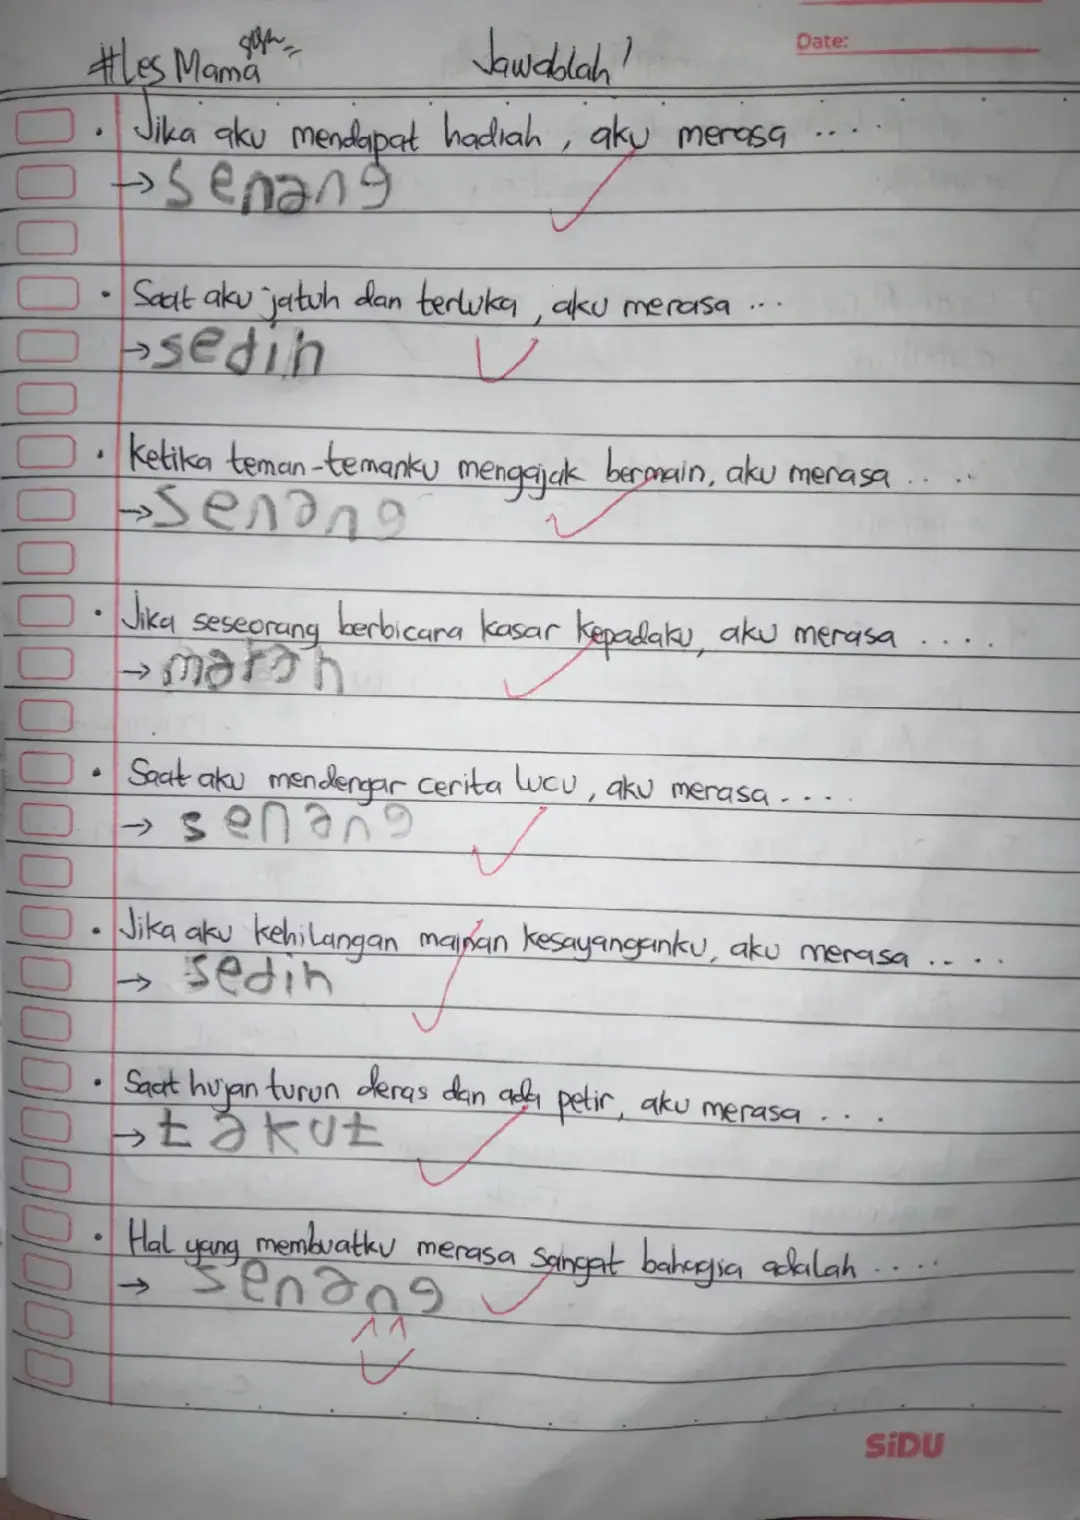 #Les Mama
Jawablah!
Date:
• Jika aku mendapat hadiah, aku merasa ....
→ senang
• Saat aku jatuh dan terluka, aku merasa ...
→ sedih
• Ketika teman-temanku mengajak bermain, aku merasa ....
→ senang
• Jika seseorang berbicara kasar kepadaku, aku merasa ....
→ marah
• Saat aku mendengar cerita lucu, aku merasa ....
→ senang
• Jika aku kehilangan mainan kesayanganku, aku merasa ....
→ sedih
• Saat hujan turun deras dan ada petir, aku merasa ....
→ takut
• Hal yang membuatku merasa sangat bahagia adalah ....
→ senang
SiDU